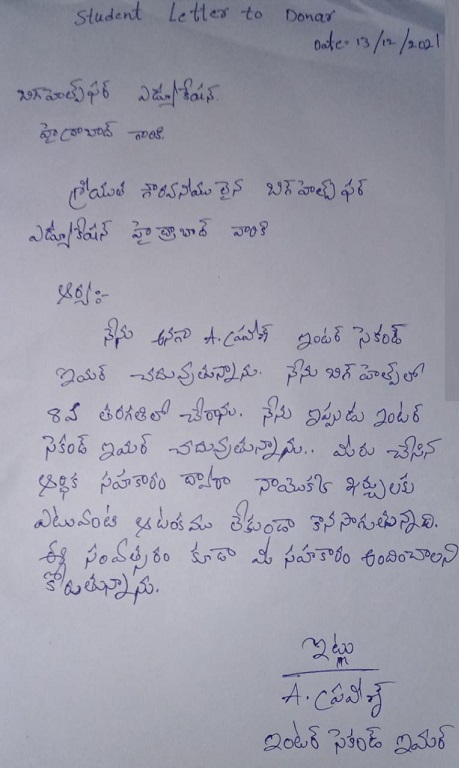 Student Letter to Donar
Date: 13/12/2021
బిగ్‌హెల్ప్‌ఫర్ ఎడ్యుకేషన్.
హైద్రాబాద్ గారికి.
శ్రీయుత గౌరవనీయులైన బిగ్‌హెల్ప్ ఫర్
ఎడ్యుకేషన్ హైద్రాబాద్ వారికి
ఆర్య:-
నేను అనగా A. ప్రవీణ్ ఇంటర్ సెకండ్
ఇయర్ చదువుతున్నాను. నేను బిగ్ హెల్ప్‌లో
8వ తరగతిలో చేరాను. నేను ఇప్పుడు ఇంటర్
సెకండ్ ఇయర్ చదువుతున్నాను.. మీరు చేసిన
ఆర్థిక సహకారం ద్వారా నాయొక్క ఖర్చులకు
ఎటువంటి ఆటంకము లేకుండా కొనసాగుతున్నాది.
ఈ సంవత్సరం కూడా మీ సహకారం అందించాలని
కోరుతున్నాను.
ఇట్లు
A. ప్రవీణ్
ఇంటర్ సెకండ్ ఇయర్